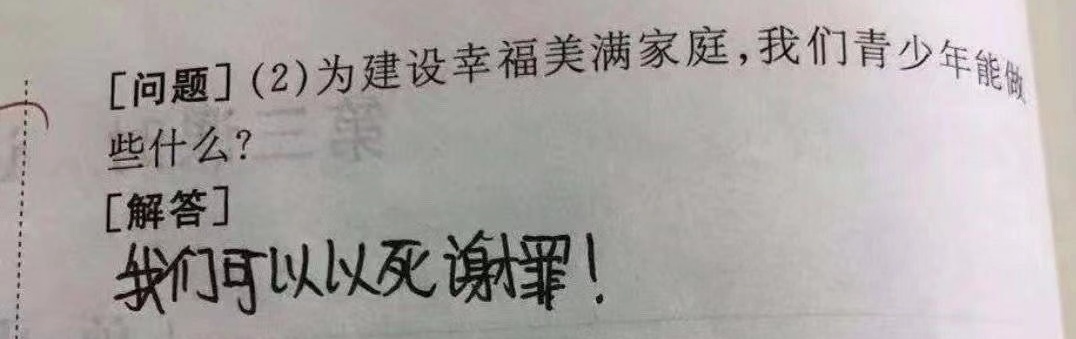 [问题](2)为建设幸福美满家庭,我们青少年能做
些什么?
[解答]
我们可以以死谢罪!